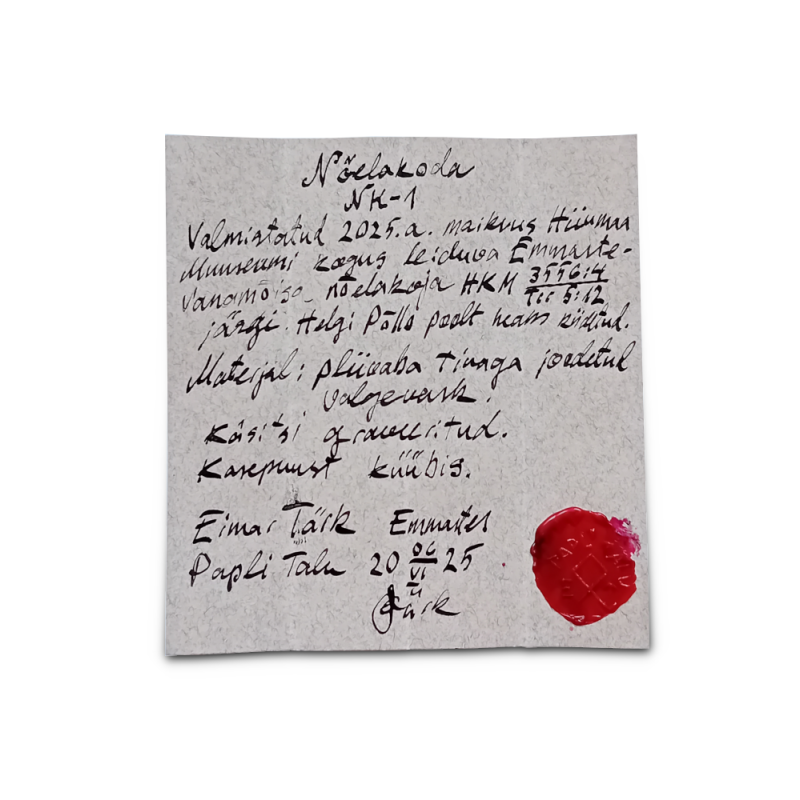 Nõelakoda
NK-1
Valmistatud 2025.a. maikuus Hiiumaa
Muuseumi kogus leiduva Emmaste-
Vanamõisa nõelakoja HKM 3556:4
järgi. Helgi Põllo poolt heaks kiidetud.
Materjal: pliivaba tinaga joodetud
valgevask.
Käsitsi graveeritud.
Kasepuust küübis.
Eimar Tärk Emmastes
Papli Talu 20 06 VI 25
Tärk